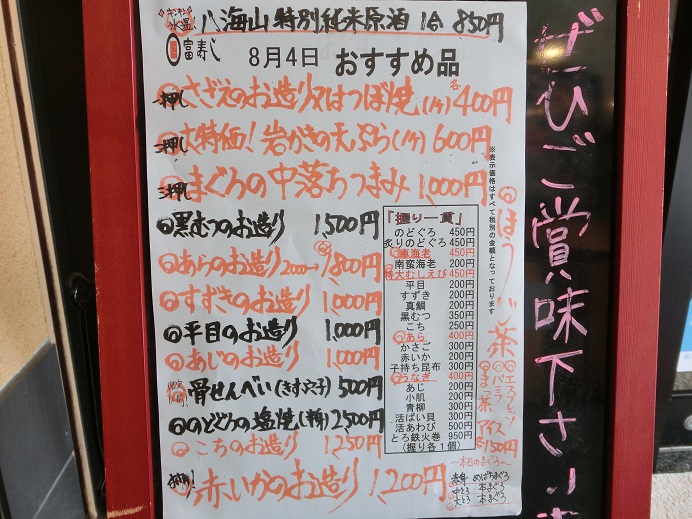 キンキン
氷温!
八海山 特別純米原酒 1合 850円
富寿し
8月4日 おすすめ品
一押し さざえのお造り又はつぼ焼(1ケ) 各400円
二押し 特価!岩がきの天ぷら(1ケ) 600円
三押し まぐろの中落ちつまみ 1,000円
黒むつのお造り 1,500円
あらのお造り 2000→1800円
すずきのお造り 1,000円
平目のお造り 1,000円
あじのお造り 1,000円
骨せんべい(きす穴子) 500円
のどぐろの塩焼(1尾) 2500円
こちのお造り 1,250円
赤いかのお造り 1,200円
「握り一貫」
のどぐろ 450円
炙りのどぐろ 450円
車海老 450円
南蛮海老 200円
特大むしえび 450円
平目 200円
すずき 200円
真鯛 200円
黒むつ 350円
こち 250円
あら 400円
かさご 300円
赤いか 200円
子持ち昆布 300円
うなぎ 400円
あじ 200円
小肌 200円
青柳 300円
活ばい貝 300円
活あわび 500円
とろ鉄火巻 950円
(握り各1個)
〜本日のまぐろ〜
赤身 めばちまぐろ
中とろ 本まぐろ
大とろ 本まぐろ
※表示価格はすべて税別の金額となっております
ほうじ茶
エスプレッソ
バニラ
ほうじ茶
アイス
各150円
ぜひご賞味下さい